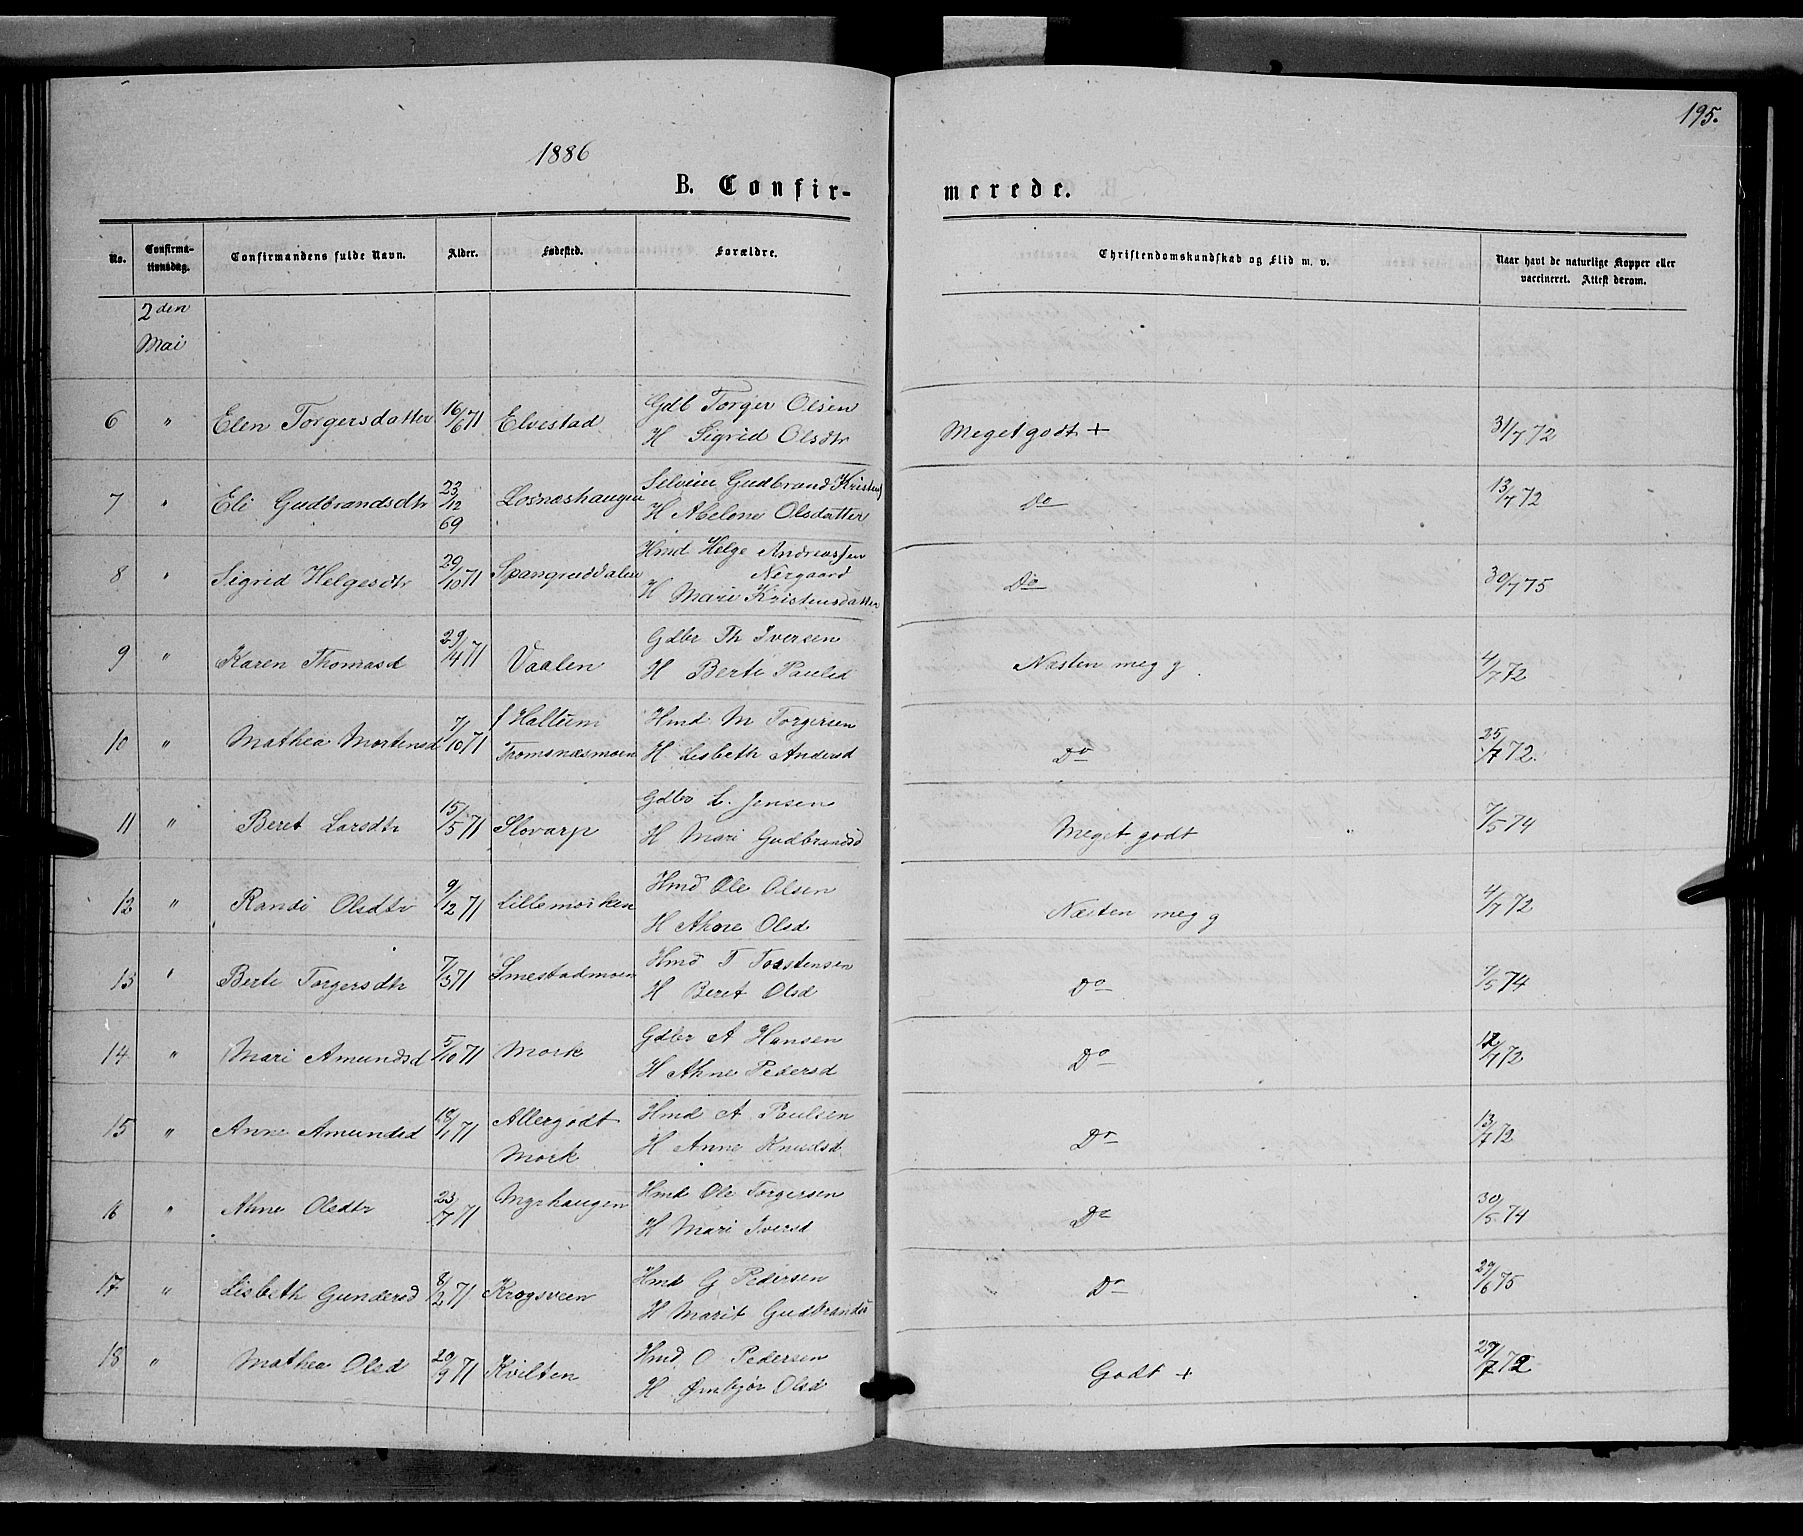 195.
1886
B. Confir-
merede.
No.
Confirma-
tionsdag.
Confirmandens fulde Navn.
Alder.
Fødested.
Forældre.
Christendomskundskab og Flid m. v.
Naar havt de naturlige Kopper eller
vaccineret. Attest derom.
2den
Mai
6 " Elen Torgersdatter 16/6 71 Elvestad Gdb Torger Olsen
H Sigrid Olsdtr Meget godt + 31/7 72
7 " Eli Gudbrandsdtr 23/12 69 Losnæshaugen Selveier Gudbrand Kristens
H Abelone Olsdatter Do 13/7 72
8 " Sigrid Helgesdtr 29/10 71 Spangruddalen Hmd Helge Andreassen
Nergaard
H Mari Kristensdatter Do 30/7 75
9 " Karen Thomasd 29/14 71 Vaalen Gdbr Th Iversen
H Berte Paulsd Næsten meg g. 4/7 72
10 " Mathea Mortensd 7/10 71 f Haltum
Tromsnæsmoen Hmd M Torgersen
H Lisbeth Andersd Do 25/7 72.
11 " Beret Larsdtr 15/5 71 Slovarp Gdbr L. Jensen
H Mari Gudbrandsd Meget godt 7/5 74
12 " Randi Olsdtr 9/12 71 Lillemorken Hmd Ole Olsen
H Ahne Olsd Næsten meg g 4/7 72
13 " Berte Torgersdtr 7/3 71 Smestadmoen Hmd T Torstensen
H Beret Olsd Do 7/5 74
14 " Mari Amundsd 5/10 71 Mork Gdbr A Hansen
H Ahne Pedersd Do 12/7 72
15 " Anne Amundsd 18/1 71 Allergodt
Mork Hmd A Paulsen
H Anne Knudsd Do 13/7 72
16 " Ahne Olsdtr 23/7 71 Myrhaugen Hmd Ole Torgersen
H Mari Iversd Do 30/5 74
17 " Lisbeth Gundersd 8/2 71 Krogsveen Hmd G Pedersen
H Marit Gudbrandsd Do 29/6 75
18 " Mathea Olsd 20/9 71 Kvilten Hmd O Pedersen
H Ømbjør Olsd Godt + 29/7 72